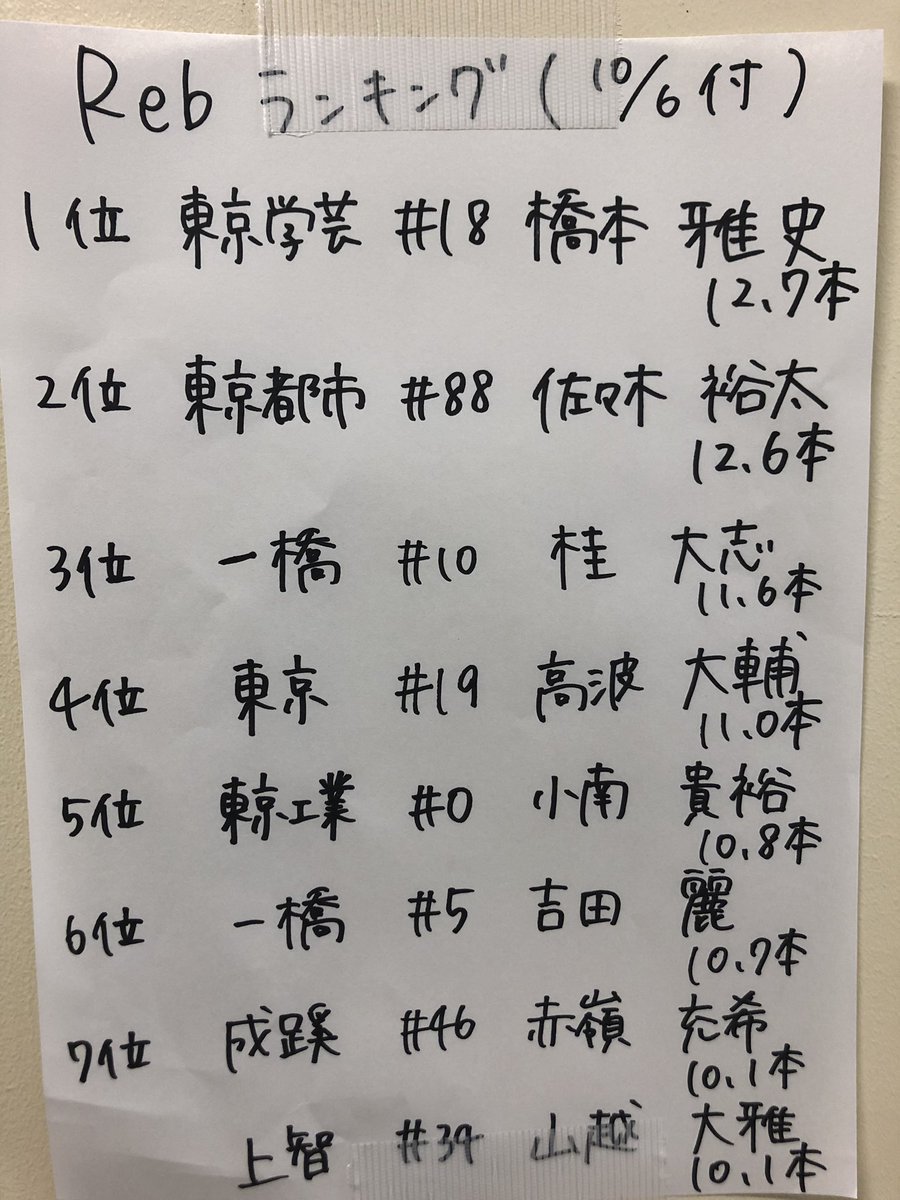 Reb ランキング (10/6付)
1位 東京学芸 #18 橋本 雅史
12.7本
2位 東京都市 #88 佐々木 裕太
12.6本
3位 一橋 #10 桂 大志
11.6本
4位 東京 #19 高波 大輔
11.0本
5位 東京工業 #0 小南 貴裕
10.8本
6位 一橋 #5 吉田 麗
10.7本
7位 成蹊 #46 赤嶺 充希
10.1本
上智 #34 山越 大雅
10.1本